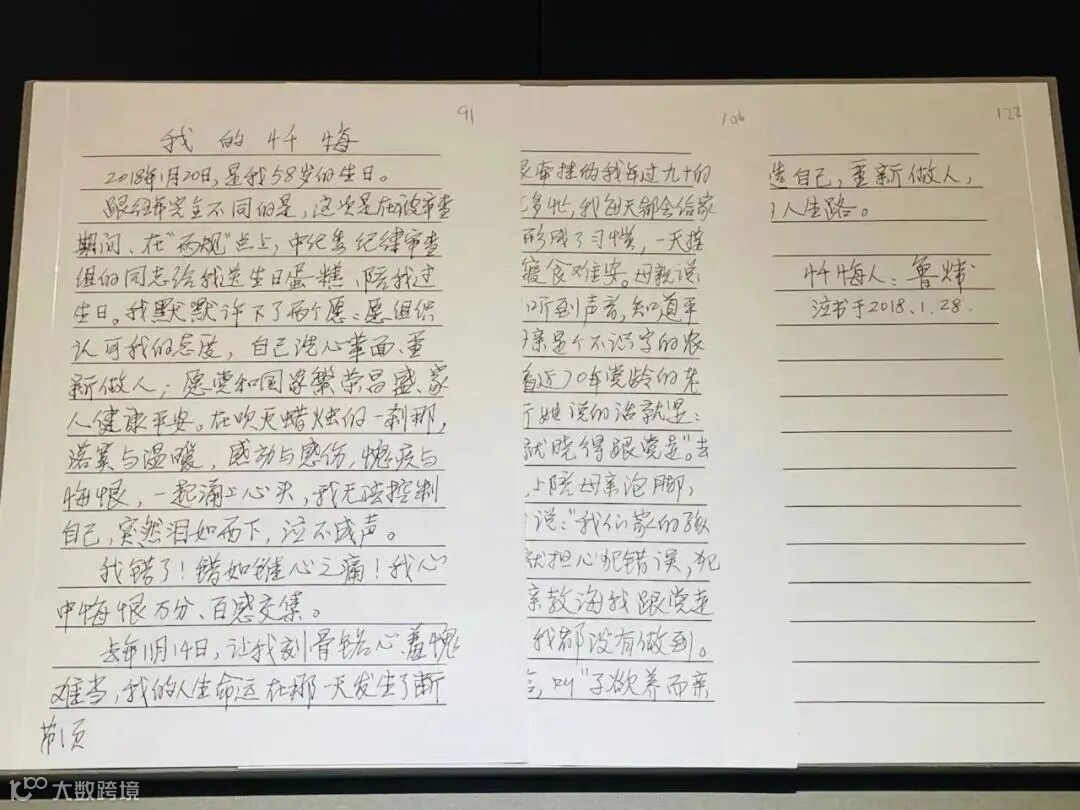 91
我的忏悔
2018年1月20日,是我58岁的生日。
跟经年完全不同的是,这次是在被审查
期间、在“两规”点上,中纪委纪律审查
组的同志给我送生日蛋糕、陪我过
生日。我默默许下了两个愿:愿组织
认可我的态度,自己洗心革面、重
新做人;愿党和国家繁荣昌盛、家
人健康平安。在吹灭蜡烛的一刹那,
落寞与温暖,感动与感伤,愧疚与
悔恨,一起涌上心头,我无法控制
自己,突然泪如雨下,泣不成声。
我错了!错如锥心之痛!我心
中悔恨万分、百感交集。
去年11月14日,让我刻骨铭心、羞愧
难当,我的人生命运在那一天发生了断
第1页
106
牵挂的我年过九十的
多忙,我每天都会给家
形成了习惯,一天接
寝食难安。母亲说
听到声音,知道平
亲是个不识字的农
着近70年党龄的老
她说的话就是:
就晓得跟党走。”去
上陪母亲泡脚,
说:“我们家的孩
就担心犯错误,犯
亲教诲我跟党走
我都没有做到。
叫“子欲养而亲
122
造自己,重新做人,
人生路。
忏悔人:鲁炜
泣书于2018.1.28.
大数跨境